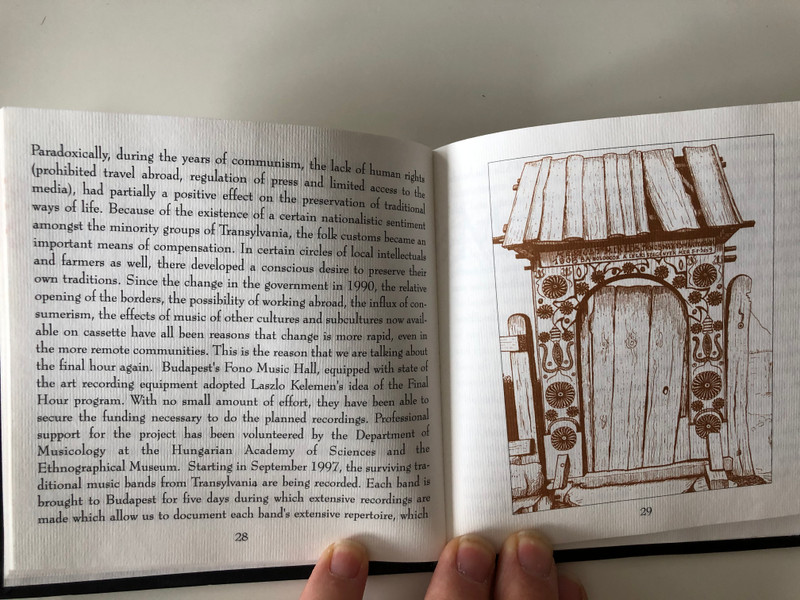 Paradoxically, during the years of communism, the lack of human rights
(prohibited travel abroad, regulation of press and limited access to the
media), had partially a positive effect on the preservation of traditional
ways of life. Because of the existence of a certain nationalistic sentiment
amongst the minority groups of Transylvania, the folk customs became an
important means of compensation. In certain circles of local intellectuals
and farmers as well, there developed a conscious desire to preserve their
own traditions. Since the change in the government in 1990, the relative
opening of the borders, the possibility of working abroad, the influx of con-
sumerism, the effects of music of other cultures and subcultures now avail-
able on cassette have all been reasons that change is more rapid, even in
the more remote communities. This is the reason that we are talking about
the final hour again. Budapest's Fono Music Hall, equipped with state of
the art recording equipment adopted Laszlo Kelemen's idea of the Final
Hour program. With no small amount of effort, they have been able to
secure the funding necessary to do the planned recordings. Professional
support for the project has been volunteered by the Department of
Musicology at the Hungarian Academy of Sciences and the
Ethnographical Museum. Starting in September 1997, the surviving tra-
ditional music bands from Transylvania are being recorded. Each band is
brought to Budapest for five days during which extensive recordings are
made which allow us to document each band's extensive repertoire, which
28
29